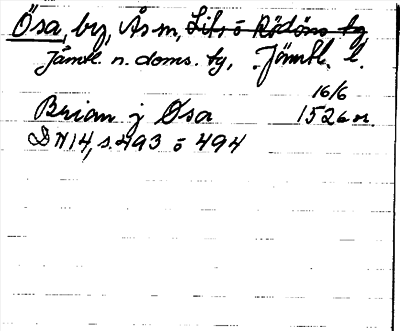 Ösa, by, Ås sn, Lits o Rödöns tg
Jämtl. n. doms. tg, Jämtl. l.
16/6
Brian j Øsa 1526 or.
DN 14, s. 493 o 494